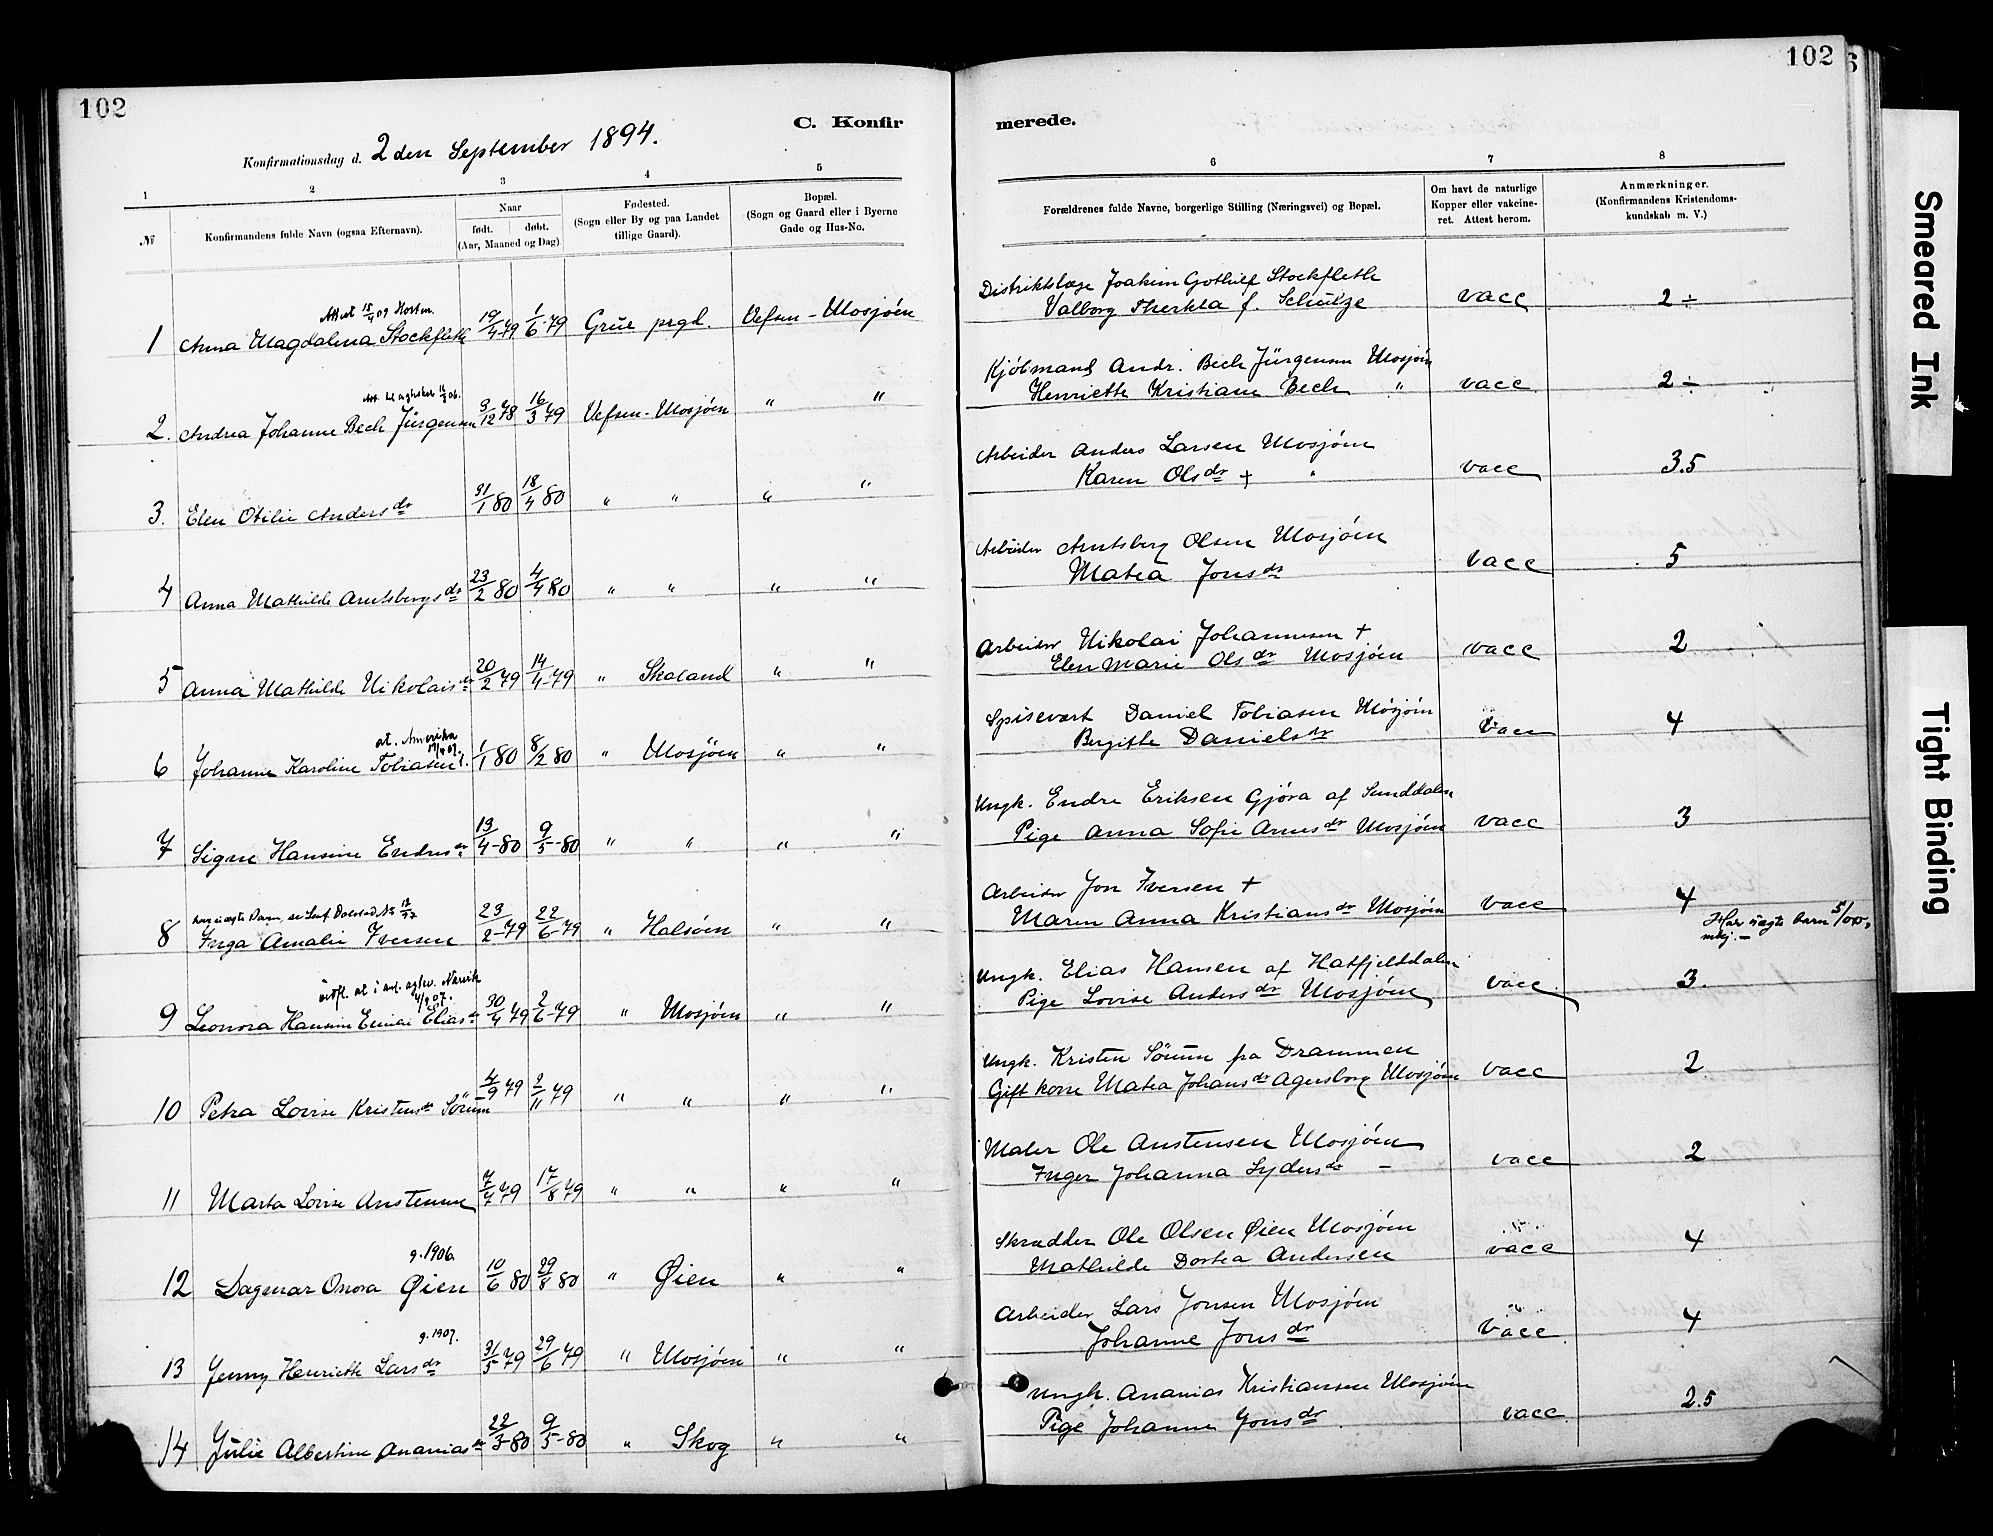 102
102
6
C. Konfir
merede.
Konfirmationsdag d. 2 den September 1894.
1 2 3 4 5 6 7 8
№
Konfirmandens fulde Navn (ogsaa Efternavn).
Naar
født. døbt.
(Aar, Maaned og Dag)
Fødested.
(Sogn eller By og paa Landet
tillige Gaard).
Bopæl.
(Sogn og Gaard eller i Byerne
Gade og Hus-No.
Forældrenes fulde Navne, borgerlige Stilling (Næringsvei) og Bopæl.
Om havt de naturlige
Kopper eller vakcine-
ret. Attest herom.
Anmærkninger.
(Konfirmandens Kristendoms-
kundskab m. V.)
Attest 15/4 09 Horten.
1 Anna Magdalena Stockfleth 19/4-79 1/6-79 Grue prgl. Vefsn - Mosjøen
Distriktslæge Joakim Gothilf Stockfleth
Valborg Therkla f. Schulze vacc 2 ÷
2. Andrea Johanne Bech Jürgensen 3/12 78 16/3 79 Vefsen - Mosjøen " "
Kjøbmand Andr. Bech Jürgensen Mosjøen
Henriette Kristiane Bech " vacc 2 ÷
3. Elen Otilie Andersdr 31/1 80 18/4 80 " " " "
Arbeider Anders Larsen Mosjøen
Karen Olsdr + " vacc 3.5
4 Anna Mathilde Amtsbergsdr 23/2 80 4/4 80 " " " "
Arbeider Amtsberg Olsen Mosjøen
Matea Jonsdr vacc 5
5 Anna Mathilde Nikolaisdr 20/2 79 14/4-79 " Skaland " "
Arbeider Nikolai Johannesen +
Elen Marie Olsdr Mosjøen vacc 2
at. Amerika
6 Johanne Karoline Tobiasen 1/1 80 8/2 80 " Mosjøen " "
Spisevært Daniel Tobiasen Mosjøen
Bergitte Danielsdr vacc 4
7 Signe Hansine Endresdr 13/4-80 9/5-80 " " " "
Ungk. Endre Eriksen Gjøra af Sunddalen
Pige Anna Sofie Arnesdr Mosjøen vacc 3
8 Inga Amalie Iversen 23/2-79 22/6-79 " Halsøen " "
Arbeider Jon Iversen +
Maren Anna Kristiansdr Mosjøen vacc 4
Har uægte barn 5/00.
9 Leonora Hansine Emilie Eliasdr 30/4 79 2/6-79 " Mosjøen " "
Ungk. Elias Hansen af Hatfjelddalen
Pige Lovise Andersdr Mosjøen vacc. 3.
10 Petra Lovise Kristensdr Sörum 4/9 79 2/11 79 " " " "
Ungk. Kristen Sörum fra Drammen
Gift kone Matea Johansdr Agersborg Mosjøen vacc 2
11 Marta Lovise Anstensen 7/4 79 17/8 79 " " " "
Maler Ole Anstensen Mosjøen
Inger Johanna Sydersdr - vacc 2
g. 1906.
12 Dagmar Onora Øien 10/6 80 29/8 80 " Øien " "
Skrædder Ole Olsen Øien Mosjøen
Mathilde Dortea Andersen vacc 4
g. 1907.
13 Jenny Henriette Larsdr 31/5 79 29/6 79 " Mosjøen " "
Arbeider Lars Jonsen Mosjøen
Johanne Jonsdr vacc. 4
14 Julie Albertine Ananiasdr 22/3-80 9/5-80 " Skog " "
Ungk. Ananias Kristiansen Mosjøen
Pige Johanne Jonsdr. vacc. 2.5
Smeared Ink
Tight Binding